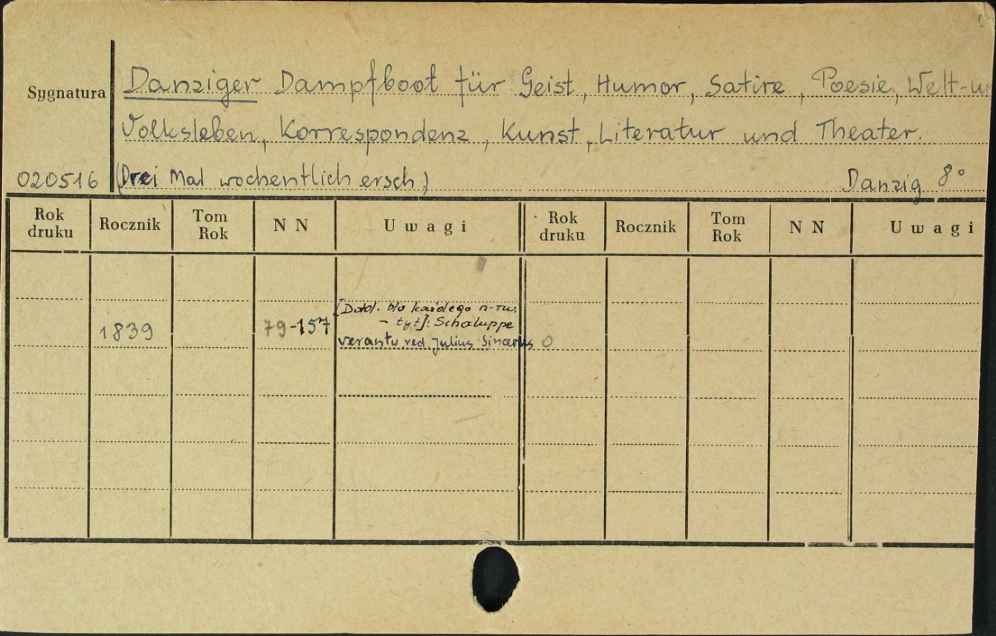 Sygnatura Danziger Dampfboot für Geist, Humor, Satire, Poesie, Welt-u
Volksleben, Korrespondenz, Kunst, Literatur und Theater.
020516 (Drei Mal wochentlich ersch.) Danzig 8°
Rok druku Rocznik Tom Rok NN Uwagi Rok druku Rocznik Tom Rok NN Uwagi
[Dod. do każdego n-ru.
1839 79-157 - tyt]: Schaluppe
verantw. red. Julius